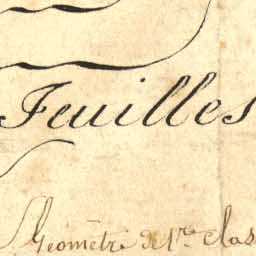 Feuilles
Géomètre de 1re clas